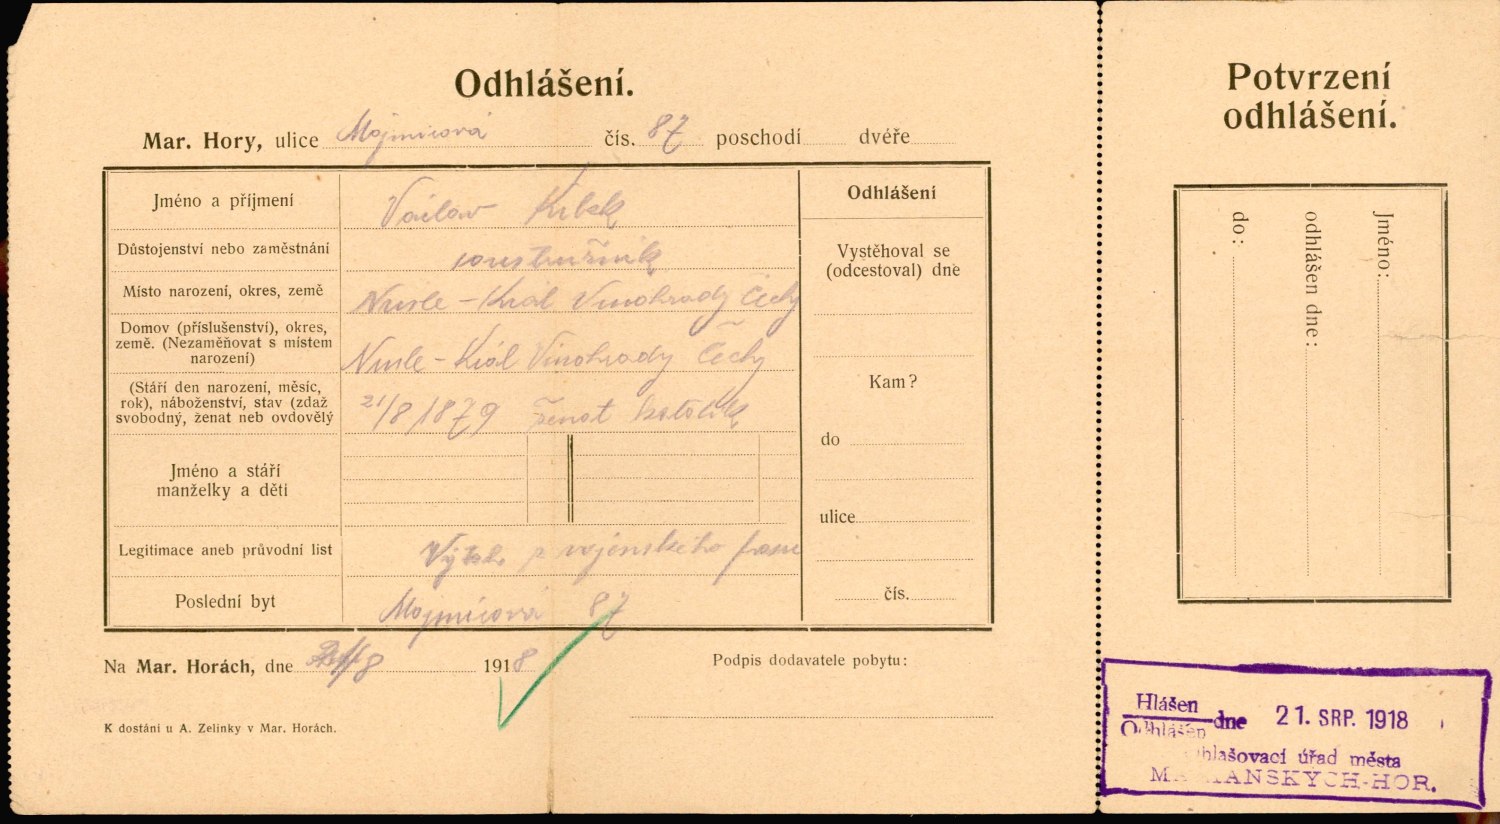 Odhlášení.
Mar. Hory, ulice Mojmírová čís. 87 poschodí dvéře
Jméno a příjmení
Důstojenství nebo zaměstnání
Místo narození, okres, země Nusle - Král Vinohrady Čechy
Domov (příslušenství), okres,
země. (Nezaměňovat s místem
narození) Nusle - Král Vinohrady Čechy
(Stáří den narození, měsíc,
rok), náboženství, stav (zdaž
svobodný, ženat neb ovdovělý 21/8 1879 ženat katolík
Jméno a stáří
manželky a děti
Legitimace aneb průvodní list vojenského
Poslední byt Mojmírová 87
Odhlášení
Vystěhoval se
(odcestoval) dne
Kam?
do
ulice
čís.
Na Mar. Horách, dne 1918
Podpis dodavatele pobytu:
K dostání u A. Zelinky v Mar. Horách.
Potvrzení
odhlášení.
Jméno:
odhlášen dne:
do:
Hlášen
Odhlášen dne 21. SRP. 1918
hlašovací úřad města
MARIÁNSKÝCH-HOR.